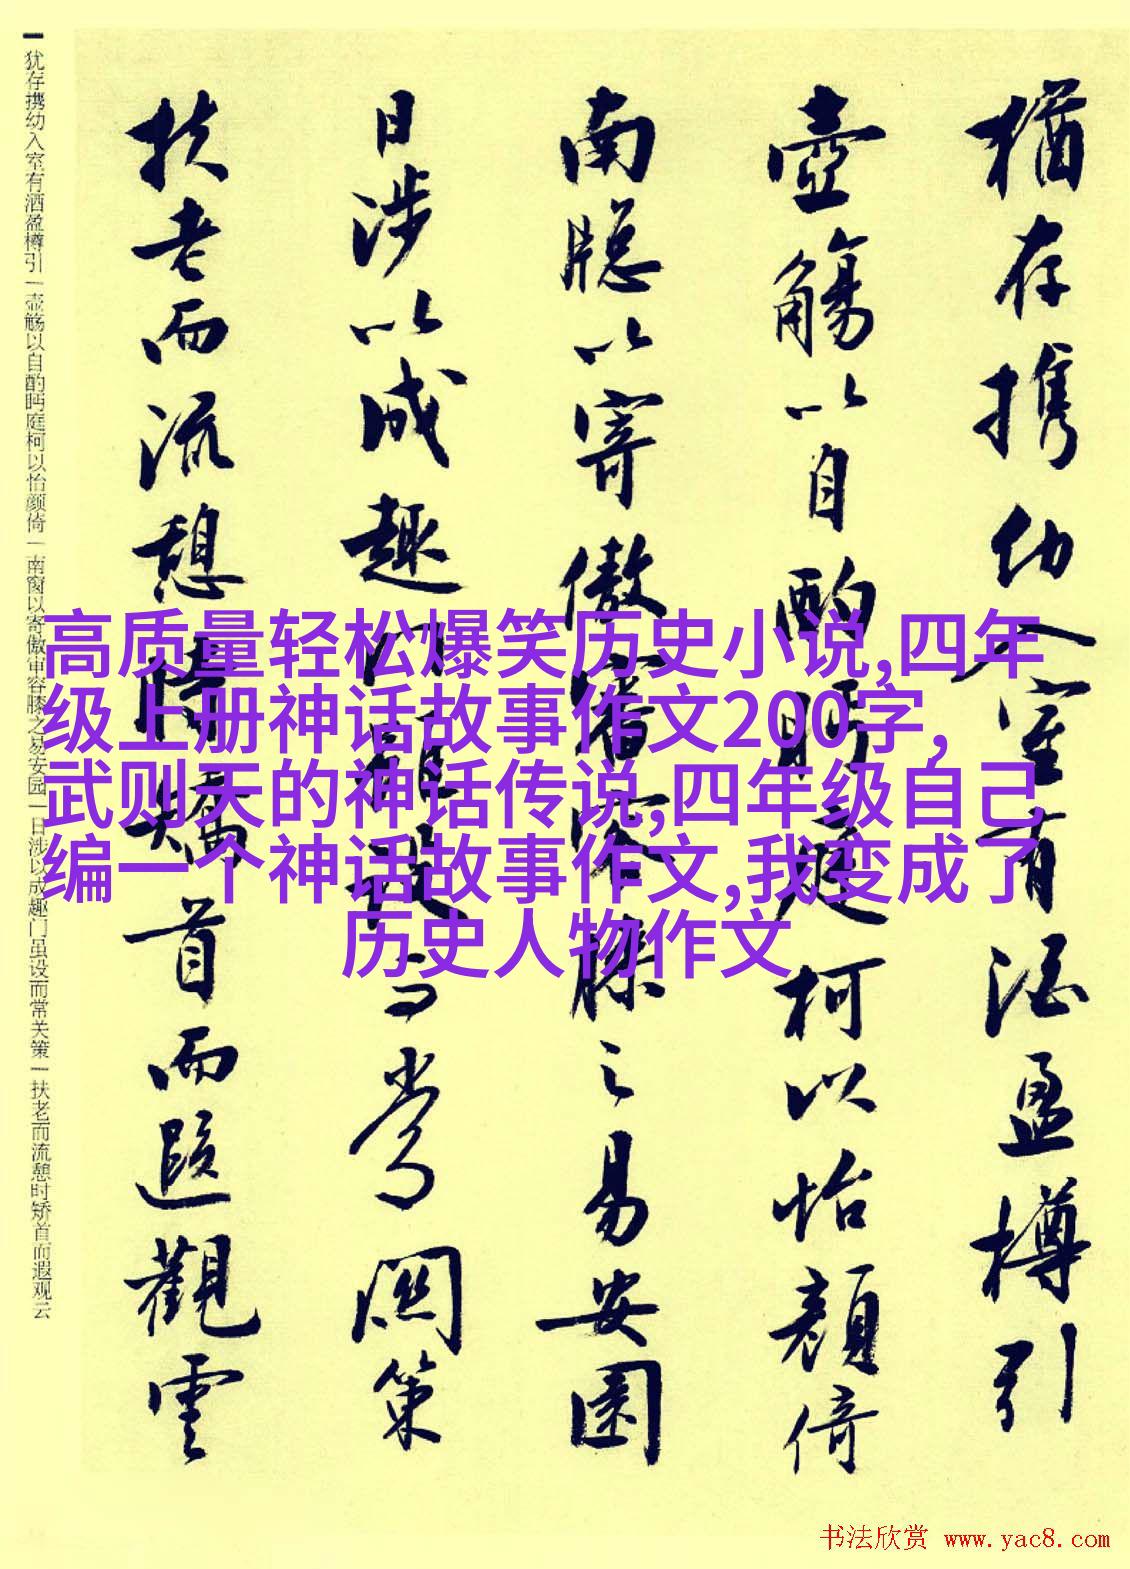 猶存携幼入室有酒盈樽引
壺觴以自酌眄庭柯以怡顔倚
南牕以寄傲審容膝之易安園
日涉以成趣門雖設而常関策
扶老而流憩時矯首而遐觀雲
犹存携幼入室有酒盈樽引一壶觞以自酌眄庭柯以怡颜倚一南窗以寄傲审容膝之易安园一日涉以成趣门虽设而常关策一扶老而流憩时矫首而遐观云
高质量轻松爆笑历史小说,四年
级上册神话故事作文200字,
武则天的神话传说,四年级自己
编一个神话故事作文,我变成了
历史人物作文
书法欣赏 www.yac8.com